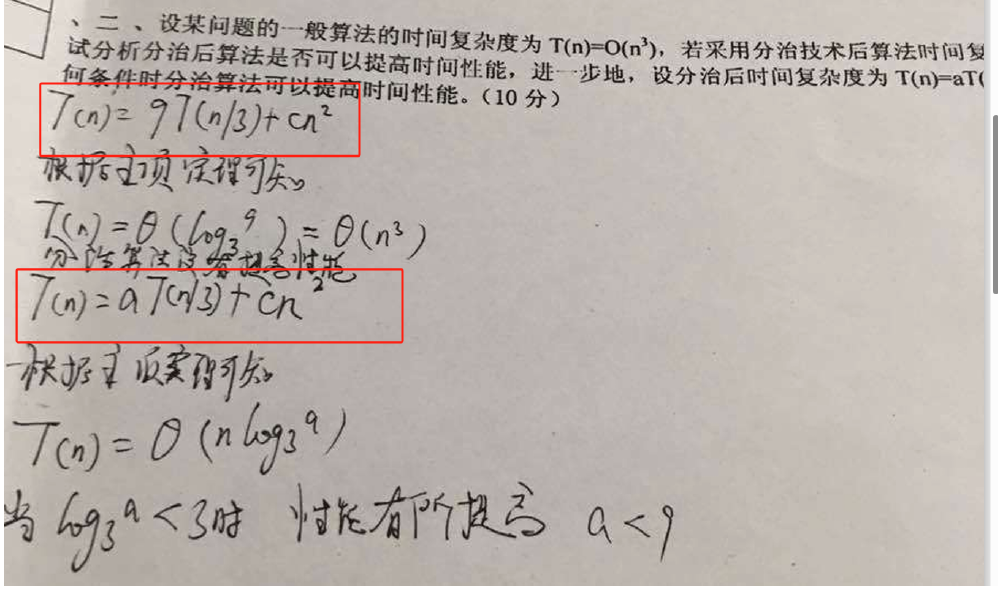 、二、设某问题的一般算法的时间复杂度为 T(n)=O(n³)，若采用分治技术后算法时间复
试分析分治后算法是否可以提高时间性能，进一步地，设分治后时间复杂度为 T(n)=aT(
何条件时分治算法可以提高时间性能。（10 分）
T(n)= 9T(n/3)+cn²
根据主项定理可知
T(n)=θ(log₃⁹)=θ(n³)
分治算法没有提高性能
T(n)=aT(n/3)+cn²
根据主项定理可知
T(n)=θ(nlog₃ᵃ)
当 log₃ᵃ<3时 性能有所提高 a<9